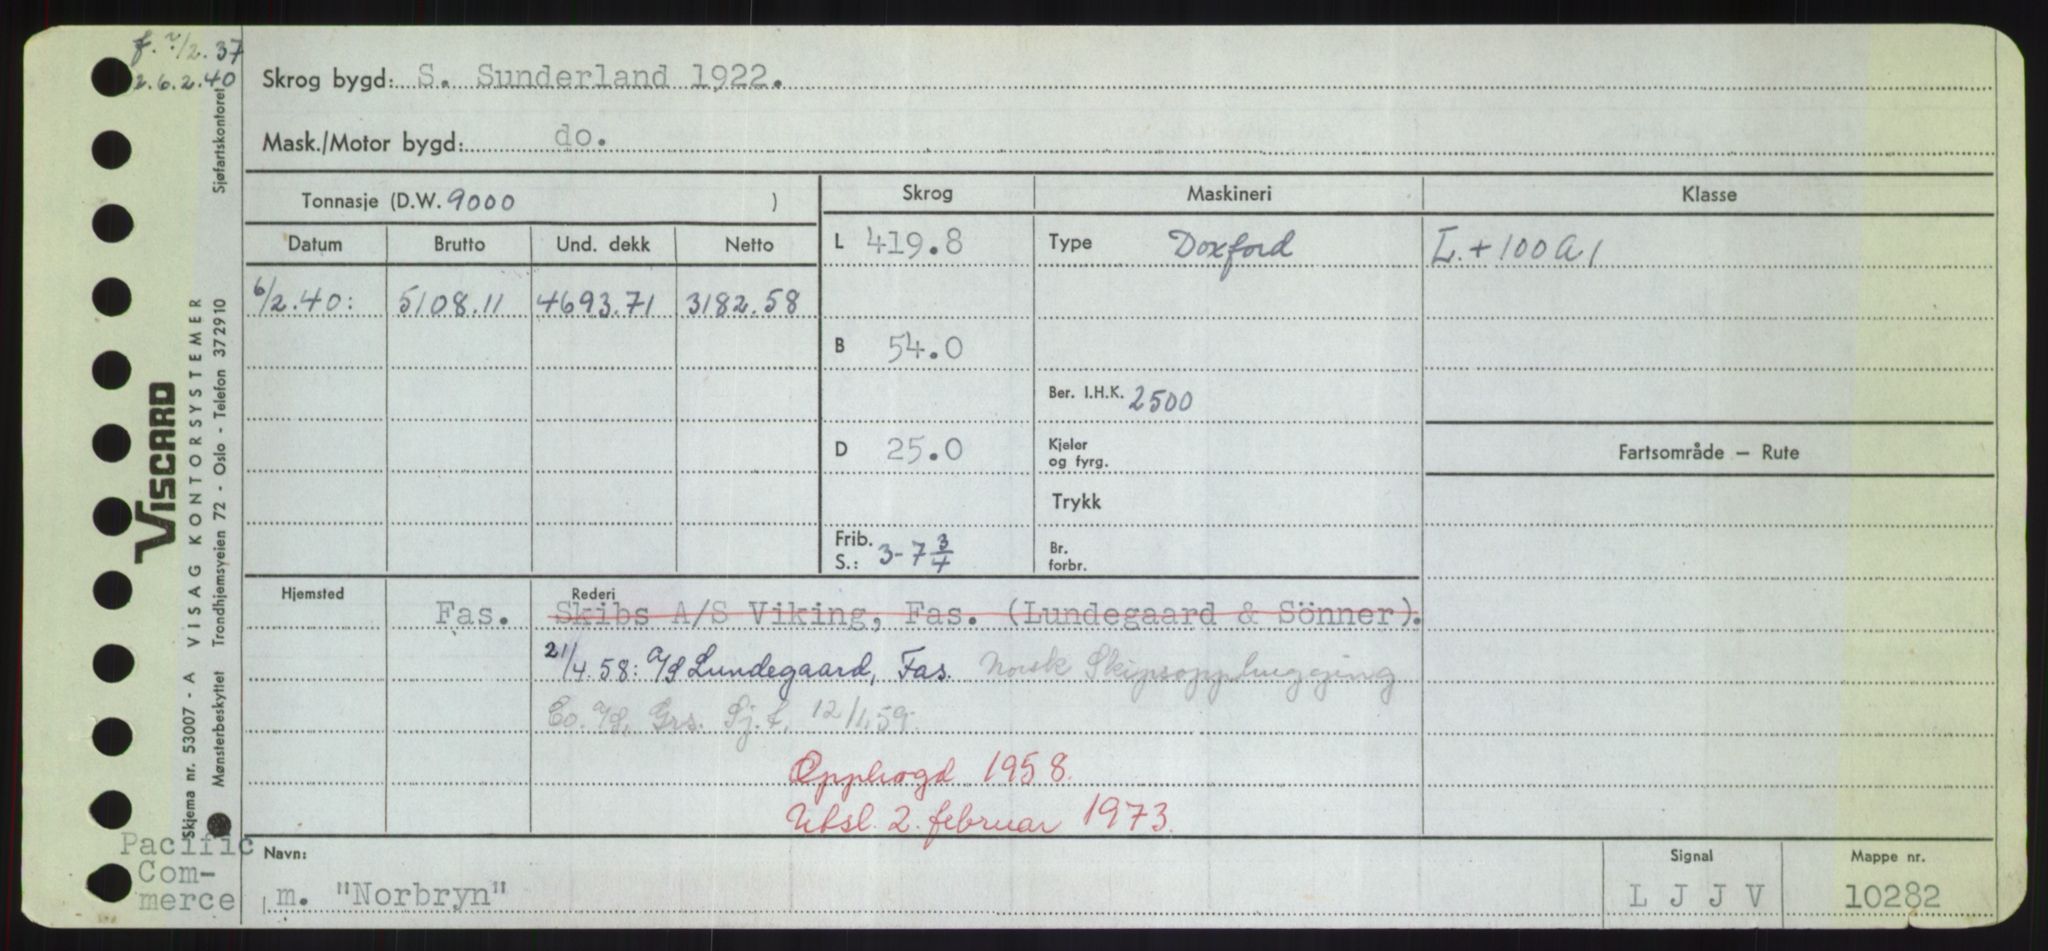 f. 2/2. 37
2.6.2.40
Skrog bygd: S. Sunderland 1922.
Mask./Motor bygd: do.
Tonnasje (D.W. 9000 )
Skrog Maskineri Klasse
Datum Brutto Und. dekk Netto
L 419.8 Type Doxford L. + 100 A 1
6/2.40: 5108.11 4693.71 3182.58
B 54.0
Ber. I.H.K. 2500
D 25.0 Kjeler og fyrg.
Fartsområde — Rute
Trykk
Frib. S.: 3-7 3/4
Br. forbr.
Hjemsted Rederi
Fas. Skibs A/S Viking, Fas. (Lundegaard & Sönner).
21/4.58: A/S Lundegaard, Fas. Norsk Skipsopphugging
Co. A/S, Grs. Sj.f. 12/1.59
Opphogd 1958.
Utsl. 2. februar 1973.
Navn: Signal Mappe nr.
m. "Norbryn" L J J V 10282
Pacific
Com-
merce
VISCARD
Skjema nr. 53007 - A VISAG KONTORSYSTEMER
Mønsterbeskyttet Trondhjemsveien 72 - Oslo - Telefon 372910 Sjøfartskontoret